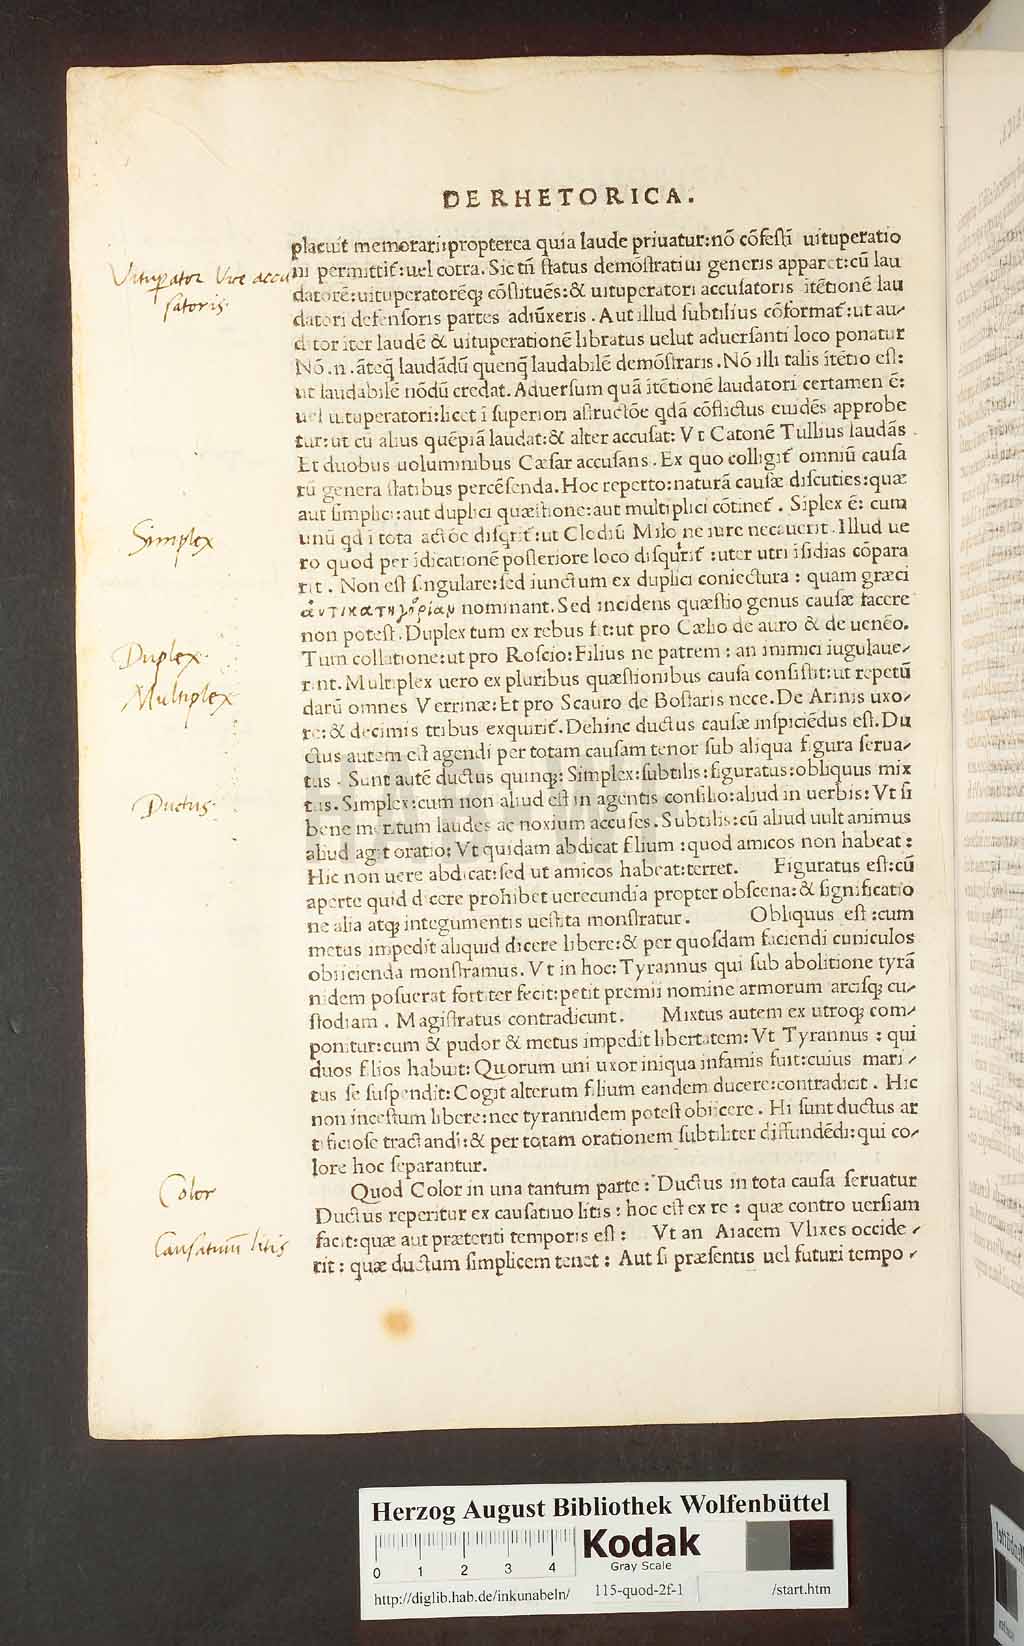 DE RHETORICA.
placuit memorari:propterea quia laude priuatur:nõ cõfestĩ uituperatio
ni permittit᷑:uel cõtra. Sic tñ status demõstratiui generis apparet:cũ lau
datorẽ:uituperatorẽq; cõstituẽs:& uituperatori accusatoris itẽtionẽ lau
datori defensoris partes adiũxeris. Aut illud subtilius cõformat᷑:ut au-
ditor iter laudẽ & uituperationẽ libratus uelut aduersanti loco ponatur
Nõ.n.ãteq̃ laudãdũ quenq̃ laudabilẽ demõstraris. Nõ illi talis itẽtio est:
ut laudabilẽ nõdũ credat. Aduersum quã itẽtionẽ laudatori certamen ẽ:
uel uituperatori:licet ĩ superiori astructiõe qdã cõflictus euidẽs approbe
tur:ut cũ alius quẽpiã laudat:& alter accusat: Vt Catonẽ Tullius laudãs
Et duobus uoluminibus Cæsar accusans. Ex quo colligit᷑ omniũ causa
rũ genera statibus percẽsenda. Hoc reperto:naturã causæ discuties:quæ
aut simplici:aut duplici quæstione:aut multiplici cõtinet᷑. Siplex ẽ: cum
unũ qd ĩ tota actiõe disqrit᷑:ut Clodiũ Milo ne iure necauerit. Illud ue
ro quod per ĩdicationẽ posteriore loco disqrit᷑:uter utri ĩsidias cõpara
rit. Non est singulare:sed iunctum ex duplici coniectura: quam græci
ἀντικατηγορίαν nominant. Sed incidens quæstio genus causæ facere
non potest. Duplex tum ex rebus fit:ut pro Cælio de auro & de uenẽo.
Tum collatione:ut pro Roscio:Filius ne patrem: an inimici iugulaue-
rint. Multiplex uero ex pluribus quæstionibus causa consistit:ut repetũ
darũ omnes Verrinæ:Et pro Scauro de Bostaris nece. De Arinis uxo-
re:& decimis tribus exquirit᷑. Dehinc ductus causæ inspiciẽdus est. Du
ctus autem est agendi per totam causam tenor sub aliqua figura serua-
tus. Sunt autẽ ductus quinq;: Simplex:subtilis:figuratus:obliquus mix
tus. Simplex:cum non aliud est in agentis consilio:aliud in uerbis: Vt si
bene meritum laudes ac noxium accuses. Subtilis:cũ aliud uult animus
aliud agit oratio: Vt quidam abdicat filium:quod amicos non habeat:
Hic non uere abdicat:sed ut amicos habeat:terret. Figuratus est:cũ
aperte quid dicere prohibet uerecundia propter obscena:& significatio
ne alia atq; integumentis uestita monstratur. Obliquus est:cum
metus impedit aliquid dicere libere:& per quosdam faciendi cuniculos
obiicienda monstramus. Vt in hoc: Tyrannus qui sub abolitione tyrã
nidem posuerat fortiter fecit:petit premii nomine armorum arcisq; cu-
stodiam. Magistratus contradicunt. Mixtus autem ex utroq; com-
ponitur:cum & pudor & metus impedit libertatem: Vt Tyrannus: qui
duos filios habuit: Quorum uni uxor iniqua infamis fuit:cuius mari-
tus se suspendit: Cogit alterum filium eandem ducere:contradicit. Hic
non incestum libere:nec tyrannidem potest obiicere. Hi sunt ductus ar
tificiose tractandi:& per totam orationem subtiliter diffundẽdi:qui co-
lore hoc separantur.
Quod Color in una tantum parte: Ductus in tota causa seruatur
Ductus reperitur ex causatiuo litis: hoc est ex re: quæ contro uersiam
facit:quæ aut præteriti temporis est: Vt an Aiacem Vlixes occide-
rit: quæ ductum simplicem tenet: Aut si præsentis uel futuri tempo-
Vituperator Vice accu
satoris.
Simplex
Duplex.
Multiplex
Ductus.
Color
Causatiuum litis
Herzog August Bibliothek Wolfenbüttel
Kodak
Gray Scale
0 1 2 3 4
http://diglib.hab.de/inkunabeln/ 115-quod-2f-1 /start.htm